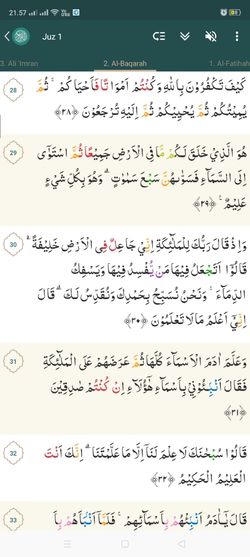 21.57
71
Juz 1
3. Ali 'Imran
2. Al-Baqarah
1. Al-Fatihah
28
كَيْفَ تَكْفُرُوْنَ بِاللّٰهِ وَكُنْتُمْ اَمْوَاتًا فَاَحْيَاكُمْۚ ثُمَّ
يُمِيْتُكُمْ ثُمَّ يُحْيِيْكُمْ ثُمَّ اِلَيْهِ تُرْجَعُوْنَ ﴿٢٨﴾
29
هُوَ الَّذِيْ خَلَقَ لَكُمْ مَّا فِى الْاَرْضِ جَمِيْعًا ثُمَّ اسْتَوٰٓى
اِلَى السَّمَاۤءِ فَسَوّٰىهُنَّ سَبْعَ سَمٰوٰتٍۗ وَهُوَ بِكُلِّ شَيْءٍ
عَلِيْمٌ ﴿٢٩﴾
30
وَاِذْ قَالَ رَبُّكَ لِلْمَلٰۤىِٕكَةِ اِنِّيْ جَاعِلٌ فِى الْاَرْضِ خَلِيْفَةًۗ
قَالُوْٓا اَتَجْعَلُ فِيْهَا مَنْ يُّفْسِدُ فِيْهَا وَيَسْفِكُ
الدِّمَاۤءَۚ وَنَحْنُ نُسَبِّحُ بِحَمْدِكَ وَنُقَدِّسُ لَكَۗ قَالَ
اِنِّيْٓ اَعْلَمُ مَا لَا تَعْلَمُوْنَ ﴿٣٠﴾
31
وَعَلَّمَ اٰدَمَ الْاَسْمَاۤءَ كُلَّهَا ثُمَّ عَرَضَهُمْ عَلَى الْمَلٰۤىِٕكَةِ
فَقَالَ اَنْۢبِـُٔوْنِيْ بِاَسْمَاۤءِ هٰٓؤُلَاۤءِ اِنْ كُنْتُمْ صٰدِقِيْنَ
﴿٣١﴾
32
قَالُوْا سُبْحٰنَكَ لَا عِلْمَ لَنَآ اِلَّا مَا عَلَّمْتَنَاۗ اِنَّكَ اَنْتَ
الْعَلِيْمُ الْحَكِيْمُ ﴿٣٢﴾
33
قَالَ يٰٓاٰدَمُ اَنْۢبِئْهُمْ بِاَسْمَاۤىِٕهِمْۚ فَلَمَّآ اَنْۢبَاَهُمْ بِاَ